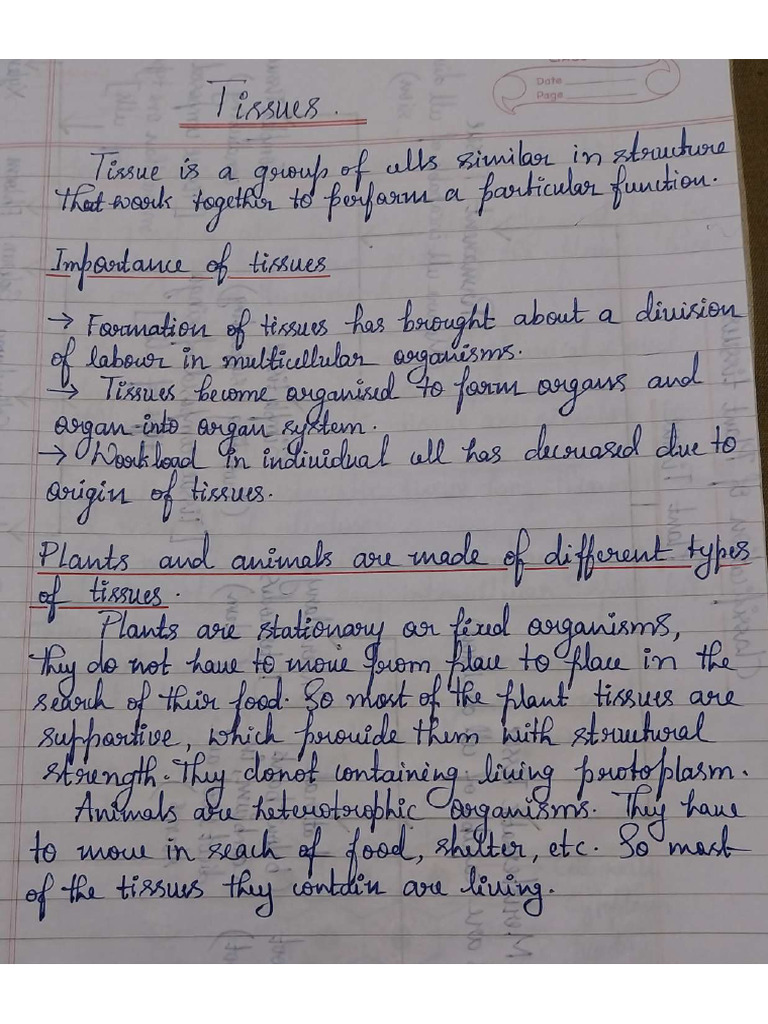 Date
Page
Tissues.
Tissue is a group of cells similar in structure
that work together to perform a particular function.
Importance of tissues
→ Formation of tissues has brought about a division
of labour in multicellular organisms.
→ Tissues become organised to form organs and
organ into organ system.
→ Workload in individual cell has decreased due to
origin of tissues.
Plants and animals are made of different types
of tissues.
Plants are stationary or fixed organisms,
They do not have to move from place to place in the
search of their food. So most of the plant tissues are
supportive, which provide them with structural
strength. They donot containing living protoplasm.
Animals are heterotrophic organisms. They have
to move in seach of food, shelter, etc. So most
of the tissues they contain are living.